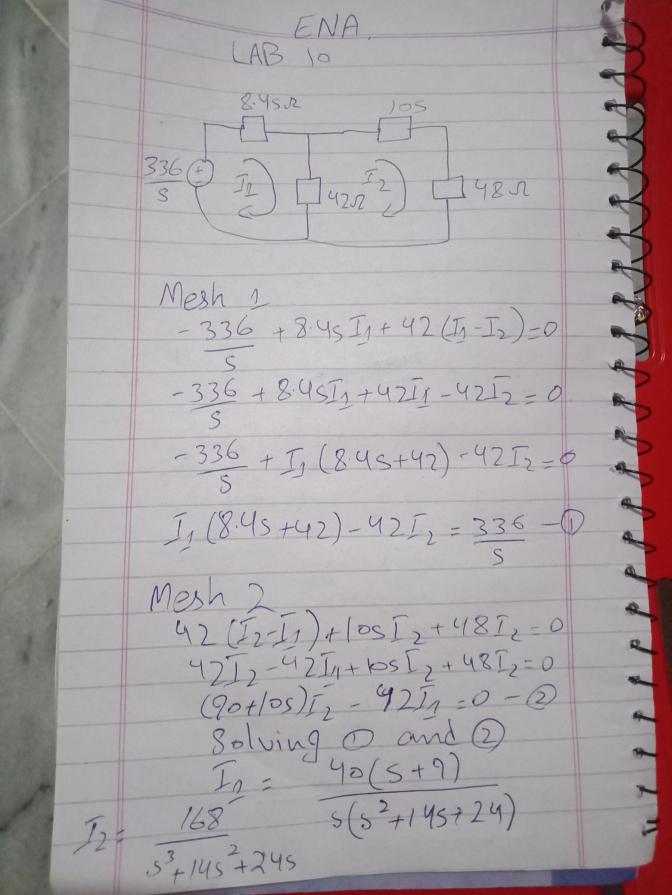 ENA.
LAB 10
8.4sΩ
10s
336/s
+
I1
42Ω
I2
48Ω
Mesh 1
-336/s + 8.4s I1 + 42 (I1 - I2) = 0
-336/s + 8.4sI1 + 42I1 - 42I2 = 0
-336/s + I1 (8.4s+42) - 42I2 = 0
I1 (8.4s+42) - 42I2 = 336/s - ①
Mesh 2
42 (I2-I1) + 10s I2 + 48I2 = 0
42I2 - 42I1 + 10s I2 + 48I2 = 0
(90+10s)I2 - 42I1 = 0 - ②
Solving ① and ②
I1 = 40(s+9) / s(s²+14s+24)
I2 = 168 / s³+14s²+24s